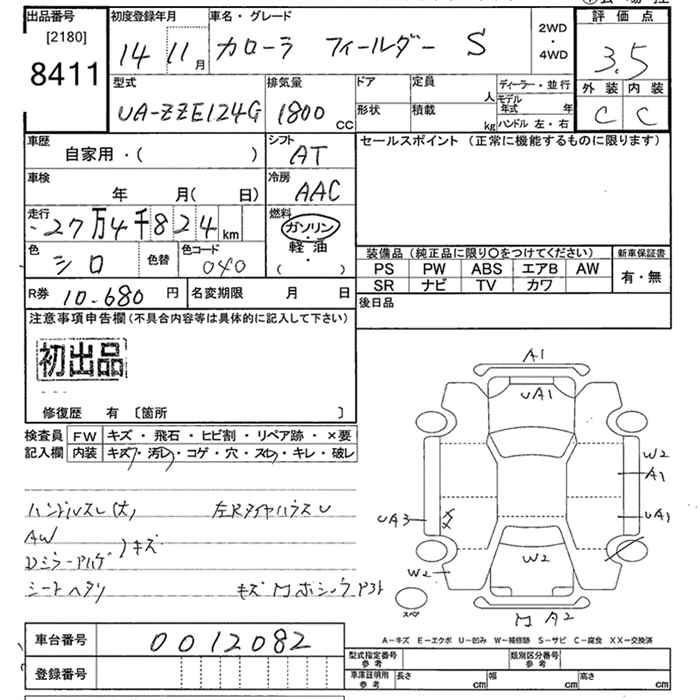 出品番号
[2180]
8411
初度登録年月
14 11月
車名・グレード
カローラ フィールダー S
2WD
・
4WD
評価点
3.5
外装 内装
C C
型式
UA-ZZE124G
排気量
1800 CC
ドア
形状
定員 人
積載 kg
ディーラー・並行
モデル年式 年
ハンドル 左・右
車歴
自家用・( )
シフト
AT
セールスポイント (正常に機能するものに限ります)
車検
年 月( 日)
冷房
AAC
走行
27万4千824 km
燃料
ガソリン
・
軽・油
・
( )
色
シロ
色替
色コード
040
装備品(純正品に限り○をつけてください)
新車保証書
PS PW ABS エアB AW
SR ナビ TV カワ
有・無
R券 10-680 円
名変期限 月 日
後日品
注意事項申告欄(不具合内容等は具体的に記入して下さい)
初出品
修復歴 有 〔箇所 〕
検査員 FW キズ・飛石・ヒビ割・リペア跡・×要
記入欄 内装 キズ・汚レ・コゲ・穴・スレ・キレ・破レ
ハンドルスレ(大) 左RタイヤハウスU
AW
Dミラー キズ
シートヘタリ
A1
UA1
W2
A1
UA3
UA1
W2
W2
A2
スペア
A-キズ E-エクボ U-凹み W-補修跡 S-サビ C-腐食 XX-交換済
車台番号 0012082
登録番号
型式指定番号
参考
類別区分番号
参考
車庫証明用
参考
長さ cm
幅 cm
高さ cm